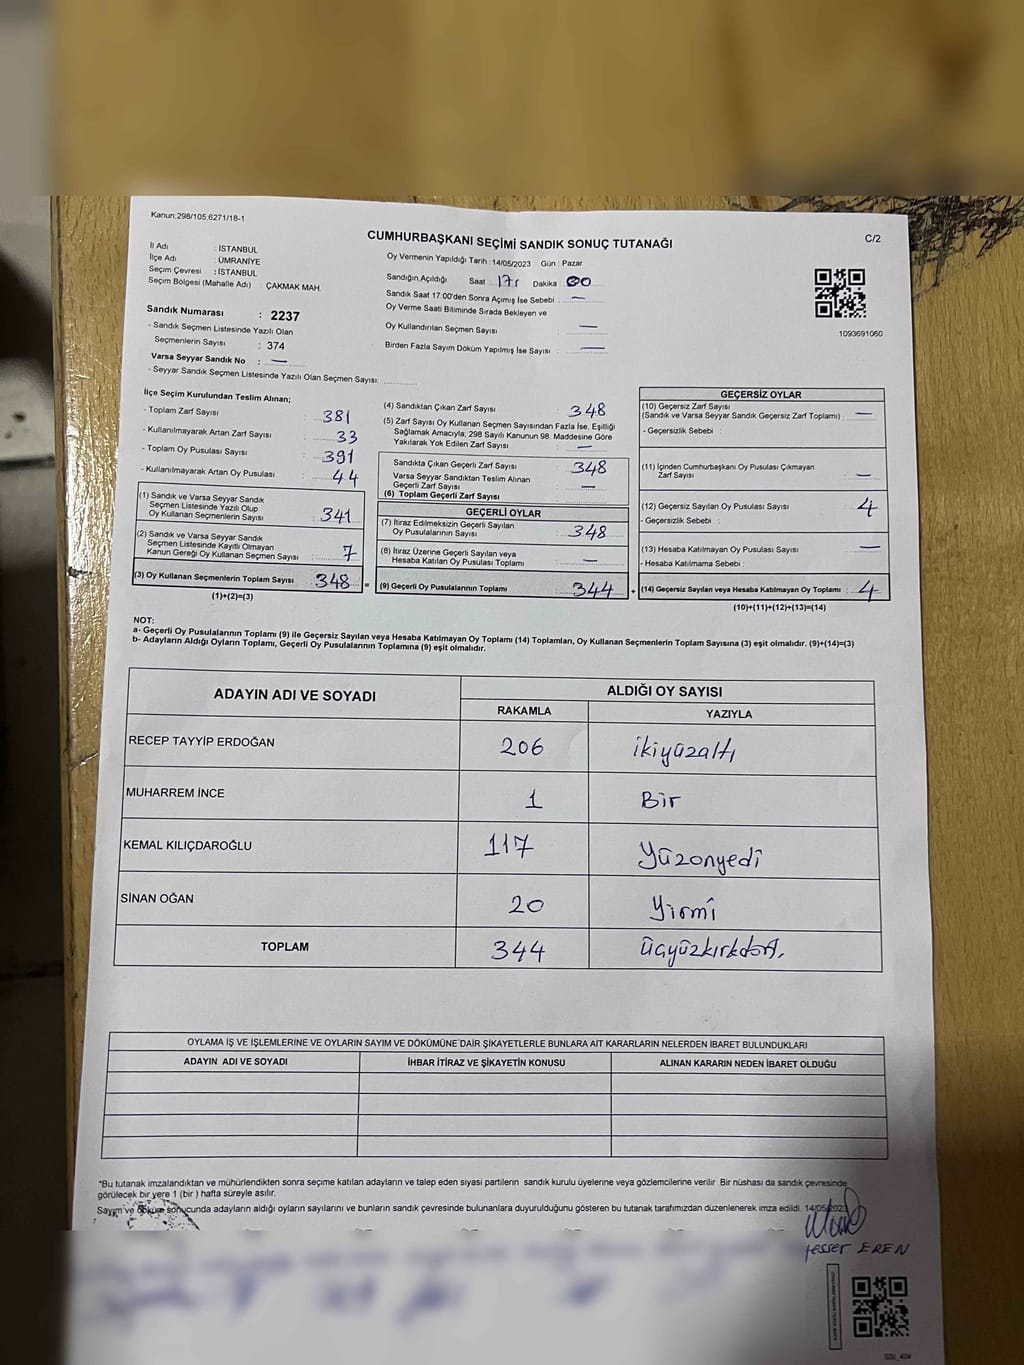 Kanun;298/105,6271/18-1
CUMHURBAŞKANI SEÇİMİ SANDIK SONUÇ TUTANAĞI
C/2
İl Adı : İSTANBUL
İlçe Adı : ÜMRANİYE
Seçim Çevresi : İSTANBUL
Seçim Bölgesi (Mahalle Adı) : ÇAKMAK MAH.
Sandık Numarası : 2237
- Sandık Seçmen Listesinde Yazılı Olan
Seçmenlerin Sayısı : 374
Varsa Seyyar Sandık No : —
- Seyyar Sandık Seçmen Listesinde Yazılı Olan Seçmen Sayısı:
Oy Vermenin Yapıldığı Tarih : 14/05/2023 Gün : Pazar
Sandığın Açıldığı Saat : 17 Dakika : 00
Sandık Saat 17.00'den Sonra Açımış İse Sebebi : —
Oy Verme Saati Bitiminde Sırada Bekleyen ve
Oy Kullandırılan Seçmen Sayısı : —
Birden Fazla Sayım Döküm Yapılmış İse Sayısı : —
1093691060
İlçe Seçim Kurulundan Teslim Alınan;
- Toplam Zarf Sayısı : 381
- Kullanılmayarak Artan Zarf Sayısı : 33
- Toplam Oy Pusulası Sayısı : 391
- Kullanılmayarak Artan Oy Pusulası : 44
(1) Sandık ve Varsa Seyyar Sandık
Seçmen Listesinde Yazılı Olup
Oy Kullanan Seçmenlerin Sayısı : 341
(2) Sandık ve Varsa Seyyar Sandık
Seçmen Listesinde Kayıtlı Olmayan
Kanun Gereği Oy Kullanan Seçmen Sayısı : 7
(3) Oy Kullanan Seçmenlerin Toplam Sayısı : 348 =
(1)+(2)=(3)
(4) Sandıktan Çıkan Zarf Sayısı : 348
(5) Zarf Sayısı Oy Kullanan Seçmen Sayısından Fazla İse, Eşitliği
Sağlamak Amacıyla; 298 Sayılı Kanunun 98. Maddesine Göre
Yakılarak Yok Edilen Zarf Sayısı : —
Sandıkta Çıkan Geçerli Zarf Sayısı : 348
Varsa Seyyar Sandıktan Teslim Alınan
Geçerli Zarf Sayısı : —
(6) Toplam Geçerli Zarf Sayısı
GEÇERLİ OYLAR
(7) İtiraz Edilmeksizin Geçerli Sayılan
Oy Pusulalarının Sayısı : 348
(8) İtiraz Üzerine Geçerli Sayılan veya
Hesaba Katılan Oy Pusulası Toplamı : —
(9) Geçerli Oy Pusulalarının Toplamı : 344 +
GEÇERSİZ OYLAR
(10) Geçersiz Zarf Sayısı
(Sandık ve Varsa Seyyar Sandık Geçersiz Zarf Toplamı) : —
- Geçersizlik Sebebi :
(11) İçinden Cumhurbaşkanı Oy Pusulası Çıkmayan
Zarf Sayısı : —
(12) Geçersiz Sayılan Oy Pusulası Sayısı : 4
- Geçersizlik Sebebi :
(13) Hesaba Katılmayan Oy Pusulası Sayısı : —
- Hesaba Katılmama Sebebi :
(14) Geçersiz Sayılan veya Hesaba Katılmayan Oy Toplamı : 4
(10)+(11)+(12)+(13)=(14)
NOT:
a- Geçerli Oy Pusulalarının Toplamı (9) ile Geçersiz Sayılan veya Hesaba Katılmayan Oy Toplamı (14) Toplamları, Oy Kullanan Seçmenlerin Toplam Sayısına (3) eşit olmalıdır. (9)+(14)=(3)
b- Adayların Aldığı Oyların Toplamı, Geçerli Oy Pusulalarının Toplamına (9) eşit olmalıdır.
ADAYIN ADI VE SOYADI
ALDIĞI OY SAYISI
RAKAMLA YAZIYLA
RECEP TAYYİP ERDOĞAN 206 ikiyüzaltı
MUHARREM İNCE 1 Bir
KEMAL KILIÇDAROĞLU 117 Yüzonyedi
SİNAN OĞAN 20 Yirmi
TOPLAM 344 üçyüzkırkdört.
OYLAMA İŞ VE İŞLEMLERİNE VE OYLARIN SAYIM VE DÖKÜMÜNE DAİR ŞİKAYETLERLE BUNLARA AİT KARARLARIN NELERDEN İBARET BULUNDUKLARI
ADAYIN ADI VE SOYADI İHBAR İTİRAZ VE ŞİKAYETİN KONUSU ALINAN KARARIN NEDEN İBARET OLDUĞU
*Bu tutanak imzalandıktan ve mühürlendikten sonra seçime katılan adayların ve talep eden siyasi partilerin sandık kurulu üyelerine veya gözlemcilerine verilir. Bir nüshası da sandık çevresinde
görülecek bir yere 1 (bir) hafta süreyle asılır.
Sayım ve döküm sonucunda adayların aldığı oyların sayılarını ve bunların sandık çevresinde bulunanlara duyurulduğunu gösteren bu tutanak tarafımızdan düzenlenerek imza edildi. 14/05/2023
EREN